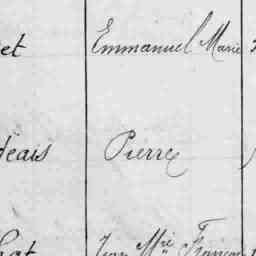 et Emmanuel Marie
deais Pierre
hat Jean Mie François